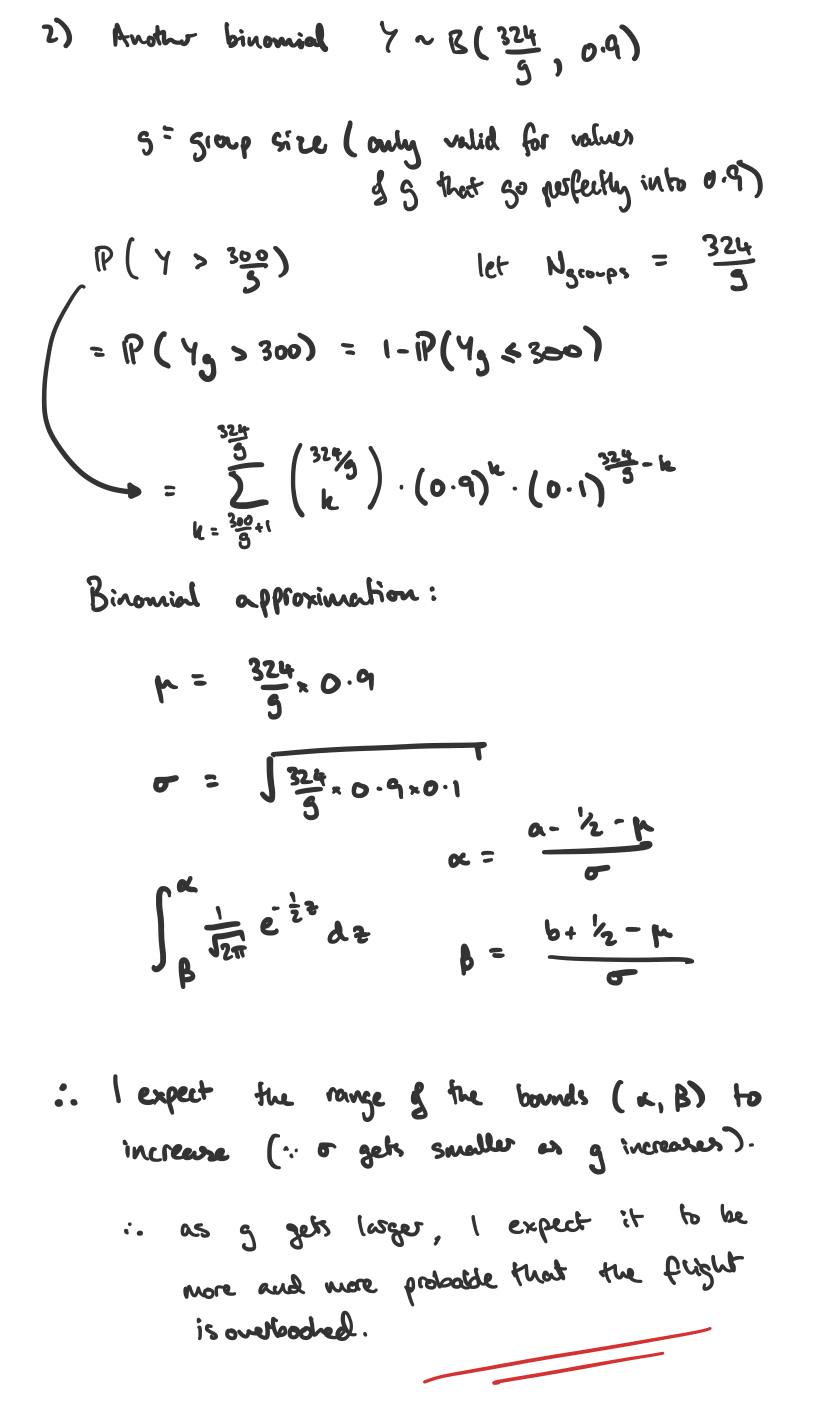 2) Another binomial Y ~ B(324/g, 0.9)
g = group size (only valid for values
of g that go perfectly into 0.9)
P(Y > 300/g) let N_groups = 324/g
= P(Yg > 300) = 1 - P(Yg ≤ 300)
= ∑_{k = 300/g + 1}^{324/g} (324/g k) · (0.9)^k · (0.1)^{324/g - k}
Binomial approximation:
μ = 324/g × 0.9
σ = √(324/g × 0.9 × 0.1)
α = (a - 1/2 - μ)/σ
∫_β^α 1/√2π e^{-1/2 z} dz β = (b + 1/2 - μ)/σ
∴ I expect the range of the bounds (α, β) to
increase (∵ σ gets smaller as g increases).
∴ as g gets larger, I expect it to be
more and more probable that the flight
is overbooked.